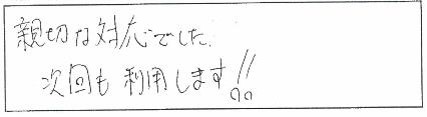 親切な対応でした。
次回も利用します!!